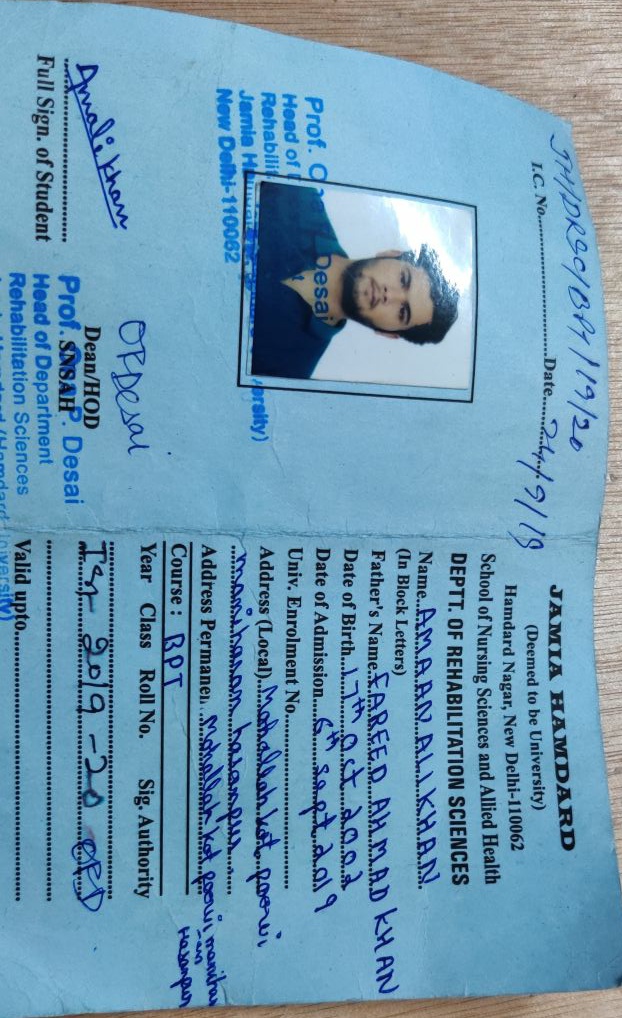 JAMIA HAMDARD
(Deemed to be University)
Hamdard Nagar, New Delhi-110062
School of Nursing Sciences and Allied Health
DEPTT. OF REHABILITATION SCIENCES
Name...AMAAN ALI KHAN
(In Block Letters)
Father's Name FAREED AHMAD KHAN
Date of Birth...17th Oct 2002
Date of Admission...6th Sept 2019
Univ. Enrolment No.
Address (Local) Mohallah kot poorvi
hasanpur
Address Permanen. Mohallah kot poorvi
Hasanpur
Course : BPT
Year Class Roll No. Sig. Authority
Ist 2019-20 OPD
Valid upto
I.C. No. Date
JH/DRSC/BPT/19/20 /9/19
Prof.
Desai
Head of
Rehabilit
Jamia H
ersity)
New Delhi-110062
OPDesai
Full Sign. of Student
Dean/HOD
SNSAH
Prof. P. Desai
Head of Department
Rehabilitation Sciences
(Hamdard University)